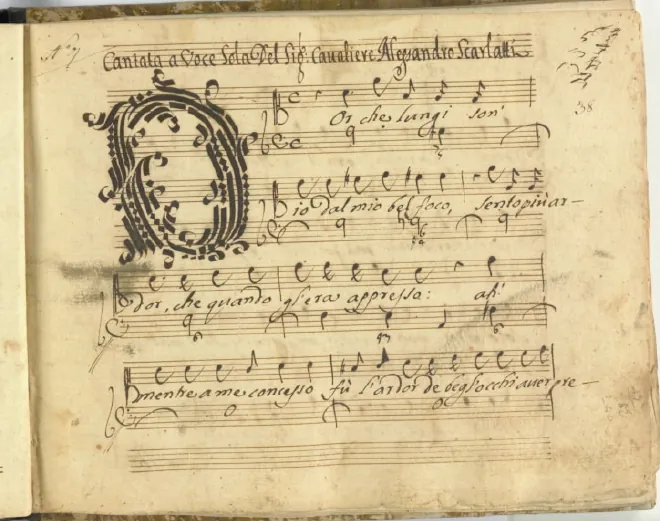 Cantata a Voce Sola Del Sigr. Cavaliere Alessandro Scarlatti
38
O
Or che lungi son'
io dal mio bel foco, sento più ar-
dor, che quando gl'era appresso: ah'
mentre a me concesso fù l'ardor de begl'occhi aver pre-